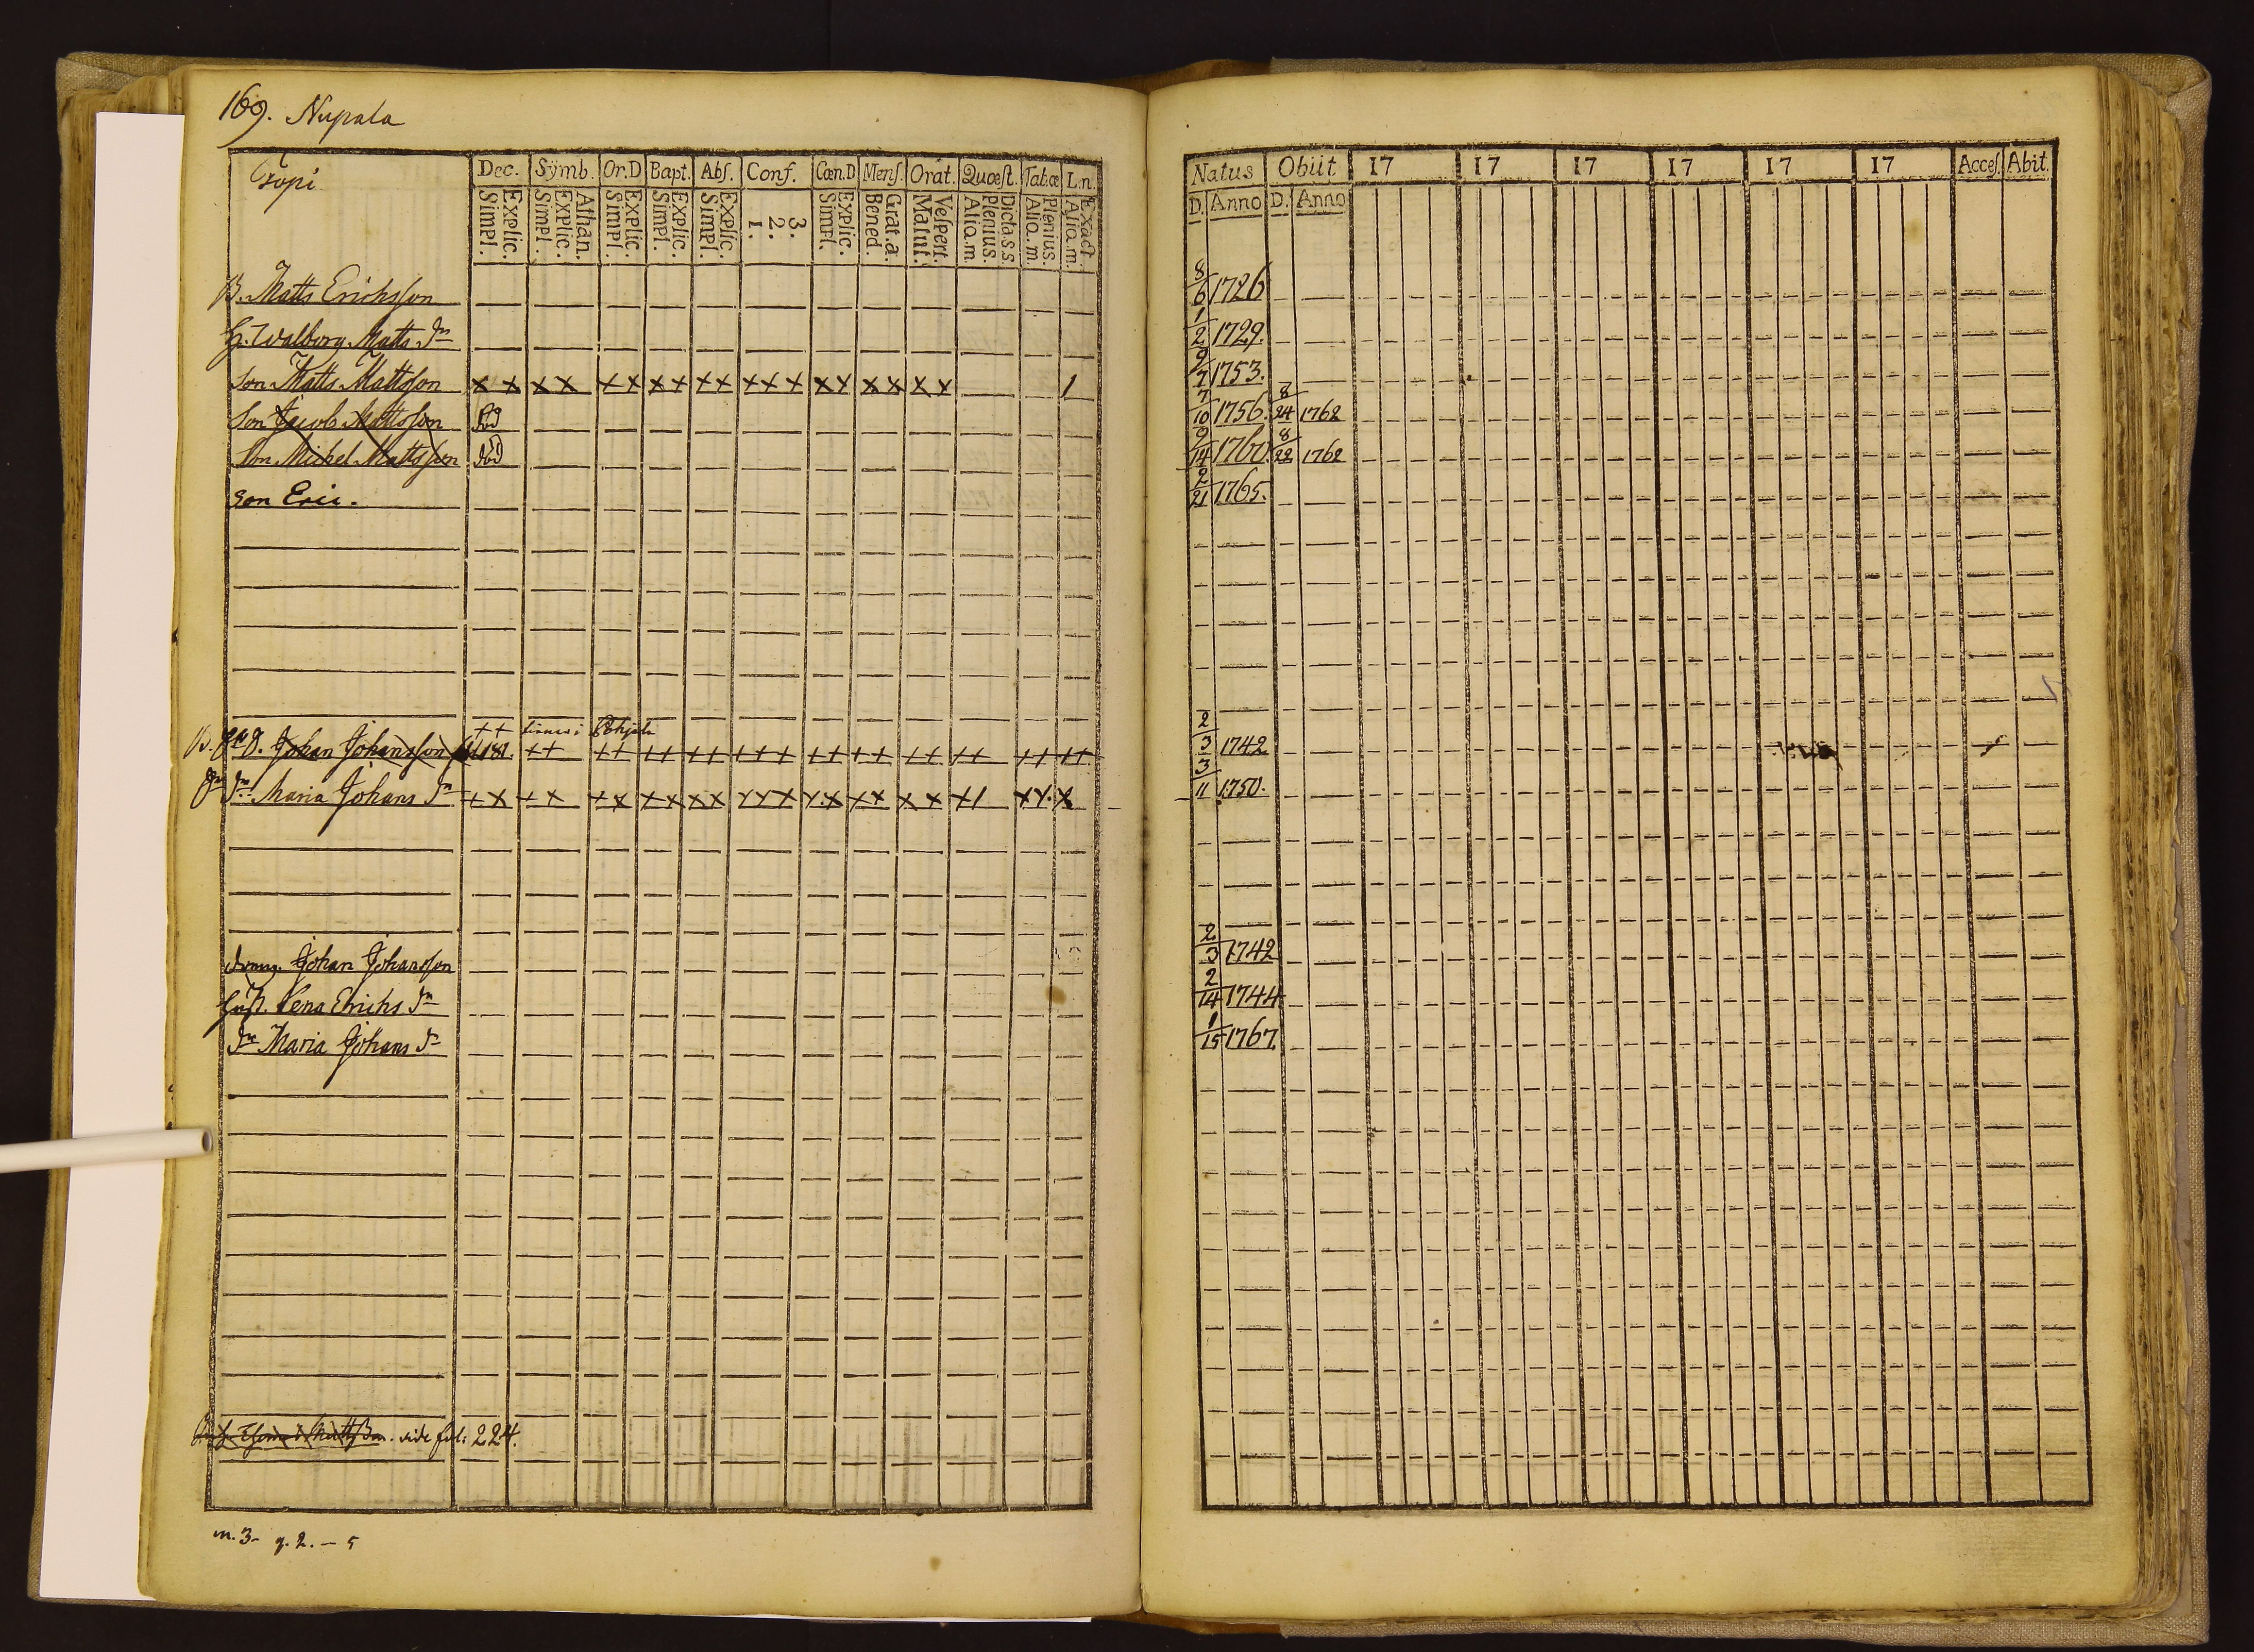 169. Nupala
Topi
Dec. Sÿmb. Or.D Bapt. Abſ. Conf. Cœn.D Menſ. Orat. Quœſt. Tab.œ L.n.
Explic. Simpl. Athan. Explic. Simpl. Explic. Simpl. Explic. Simpl. Explic. Simpl. 3. 2. 1. Explic. Simpl. Grat.a. Bened. Veſpert. Matut. Dicta.s.s. Plenius. Alio.m. Plenius. Alio.m. Exact. Alio.m.
Natus Obiit 17 17 17 17 17 17 Acceſ. Abit.
D. Anno D. Anno
B. Matts Erichsson 8/6 1726
H. Walborg Matts dr 1/2 1729.
Son Matts Mattsson x x x x x x x x x x x x x x x x x x x 1 9/7 1753.
Son Jacob Mattsson död 7/10 1756. 8/24 1762
Son Michel Mattsson död 9/14 1760. 8/22 1762
Son Eric. 2/21 1765.
Johan Johansson 181. 2/3 1742
Maria Johans dr 3/11 1750.
Johan Johansson 2/3 1742
Hust. Lena Erichs dr 2/14 1744
dr Maria Johans dr 1/15 1767.
vide fol: 224.
m. 3- q. 2. - 5